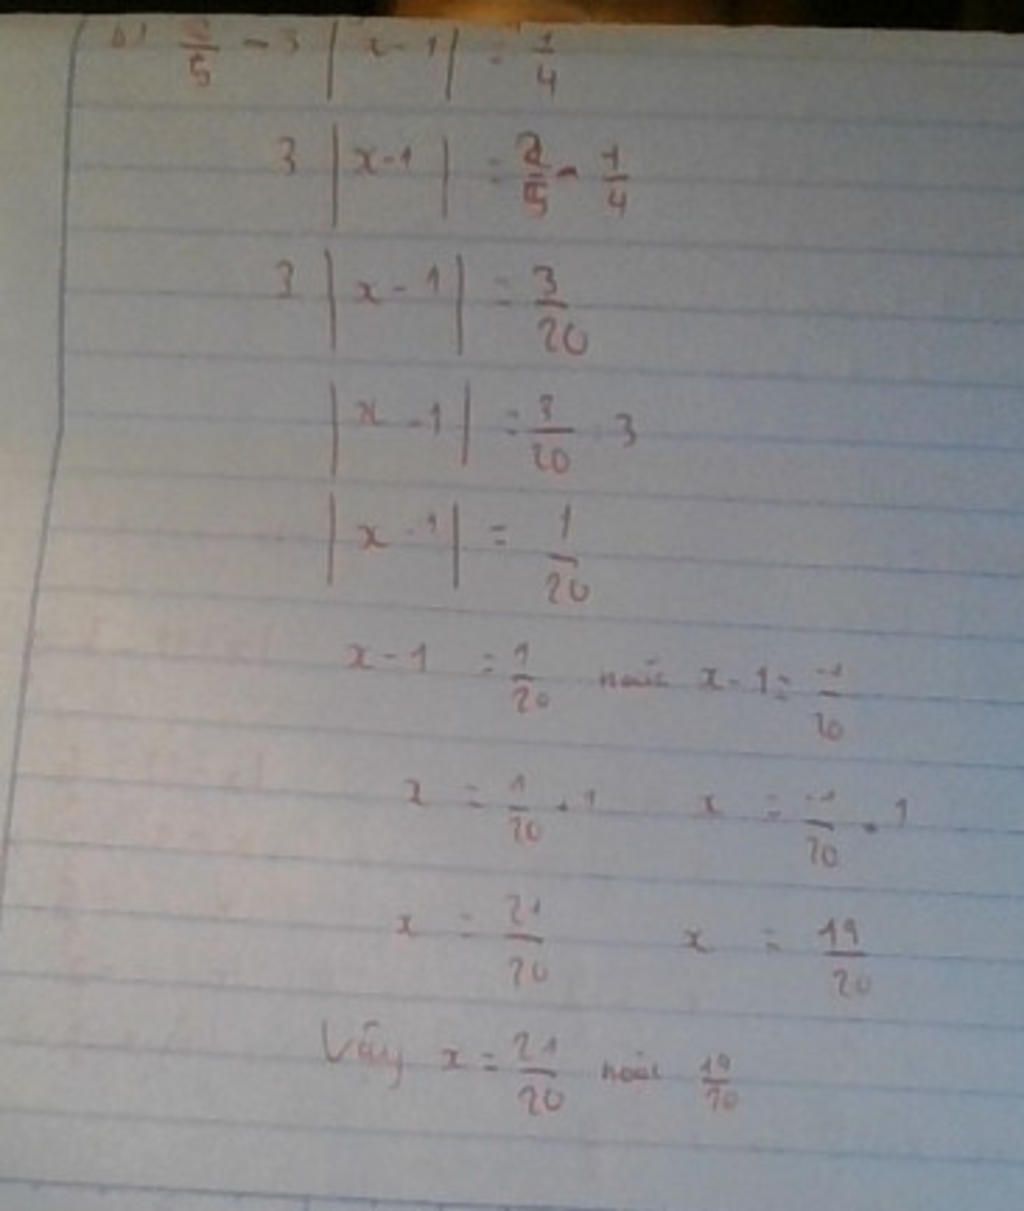 b) 2/5 - 3 |x-1| = 1/4
3 |x-1| = 2/5 - 1/4
3 |x-1| = 3/20
|x-1| = 3/20 : 3
|x-1| = 1/20
x-1 = 1/20 hoặc x-1 = -1/20
x = 1/20 + 1 x = -1/20 + 1
x = 21/20 x = 19/20
Vậy x = 21/20 hoặc 19/20